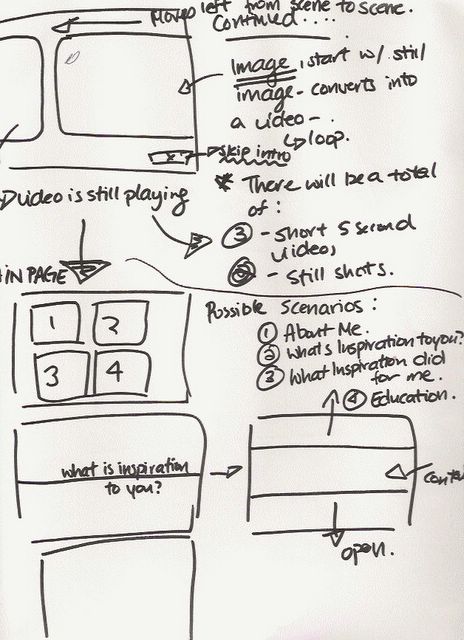 Moves left from scene to scene.
Continued....
Image, start w/ still
image - converts into
a video -
loop.
skip intro
video is still playing
* There will be a total
of:
③ - short 5 second
videos
- Still shots.
IN PAGE
1 2
3 4
Possible Scenarios:
① About Me.
② What's Inspiration to you?
③ What Inspiration did
for me.
④ Education.
what is inspiration
to you?
open.